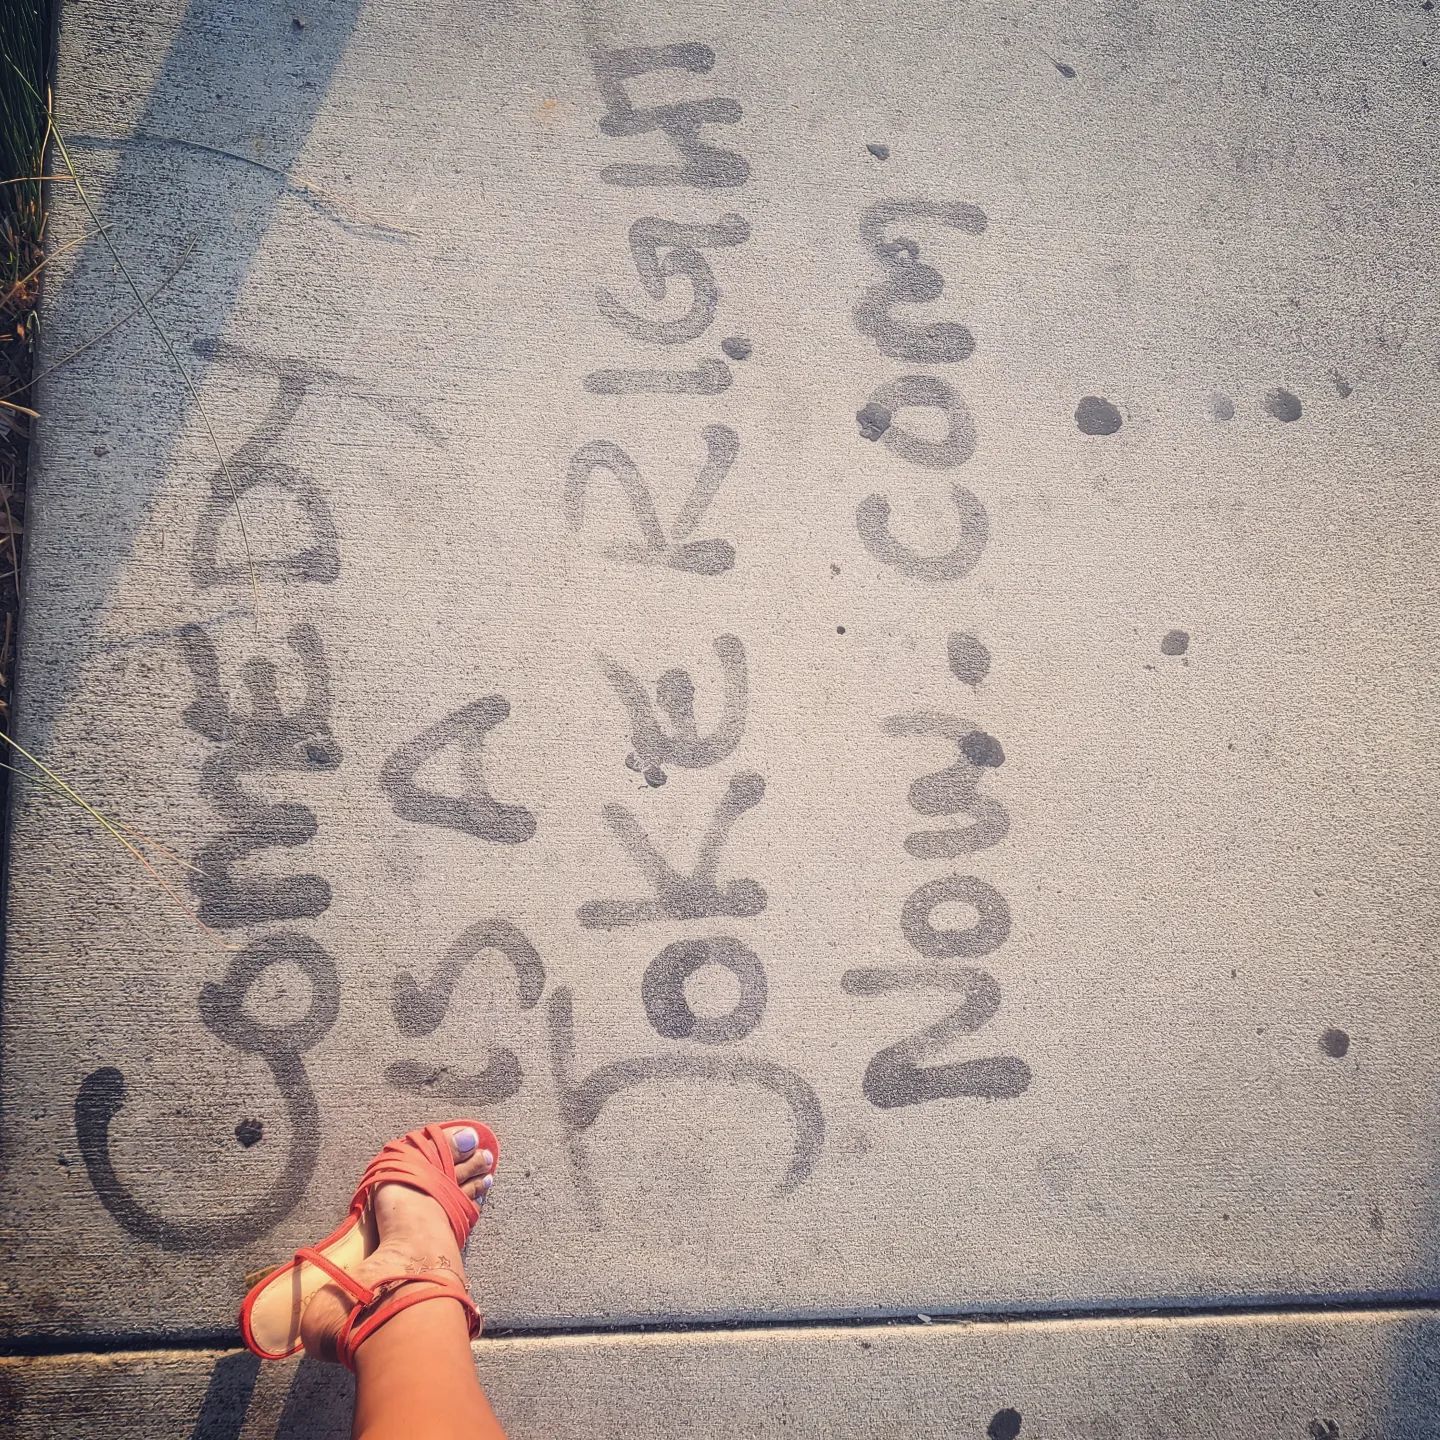 ComEDY
iS A
JoKE RiGHT
Now.Com